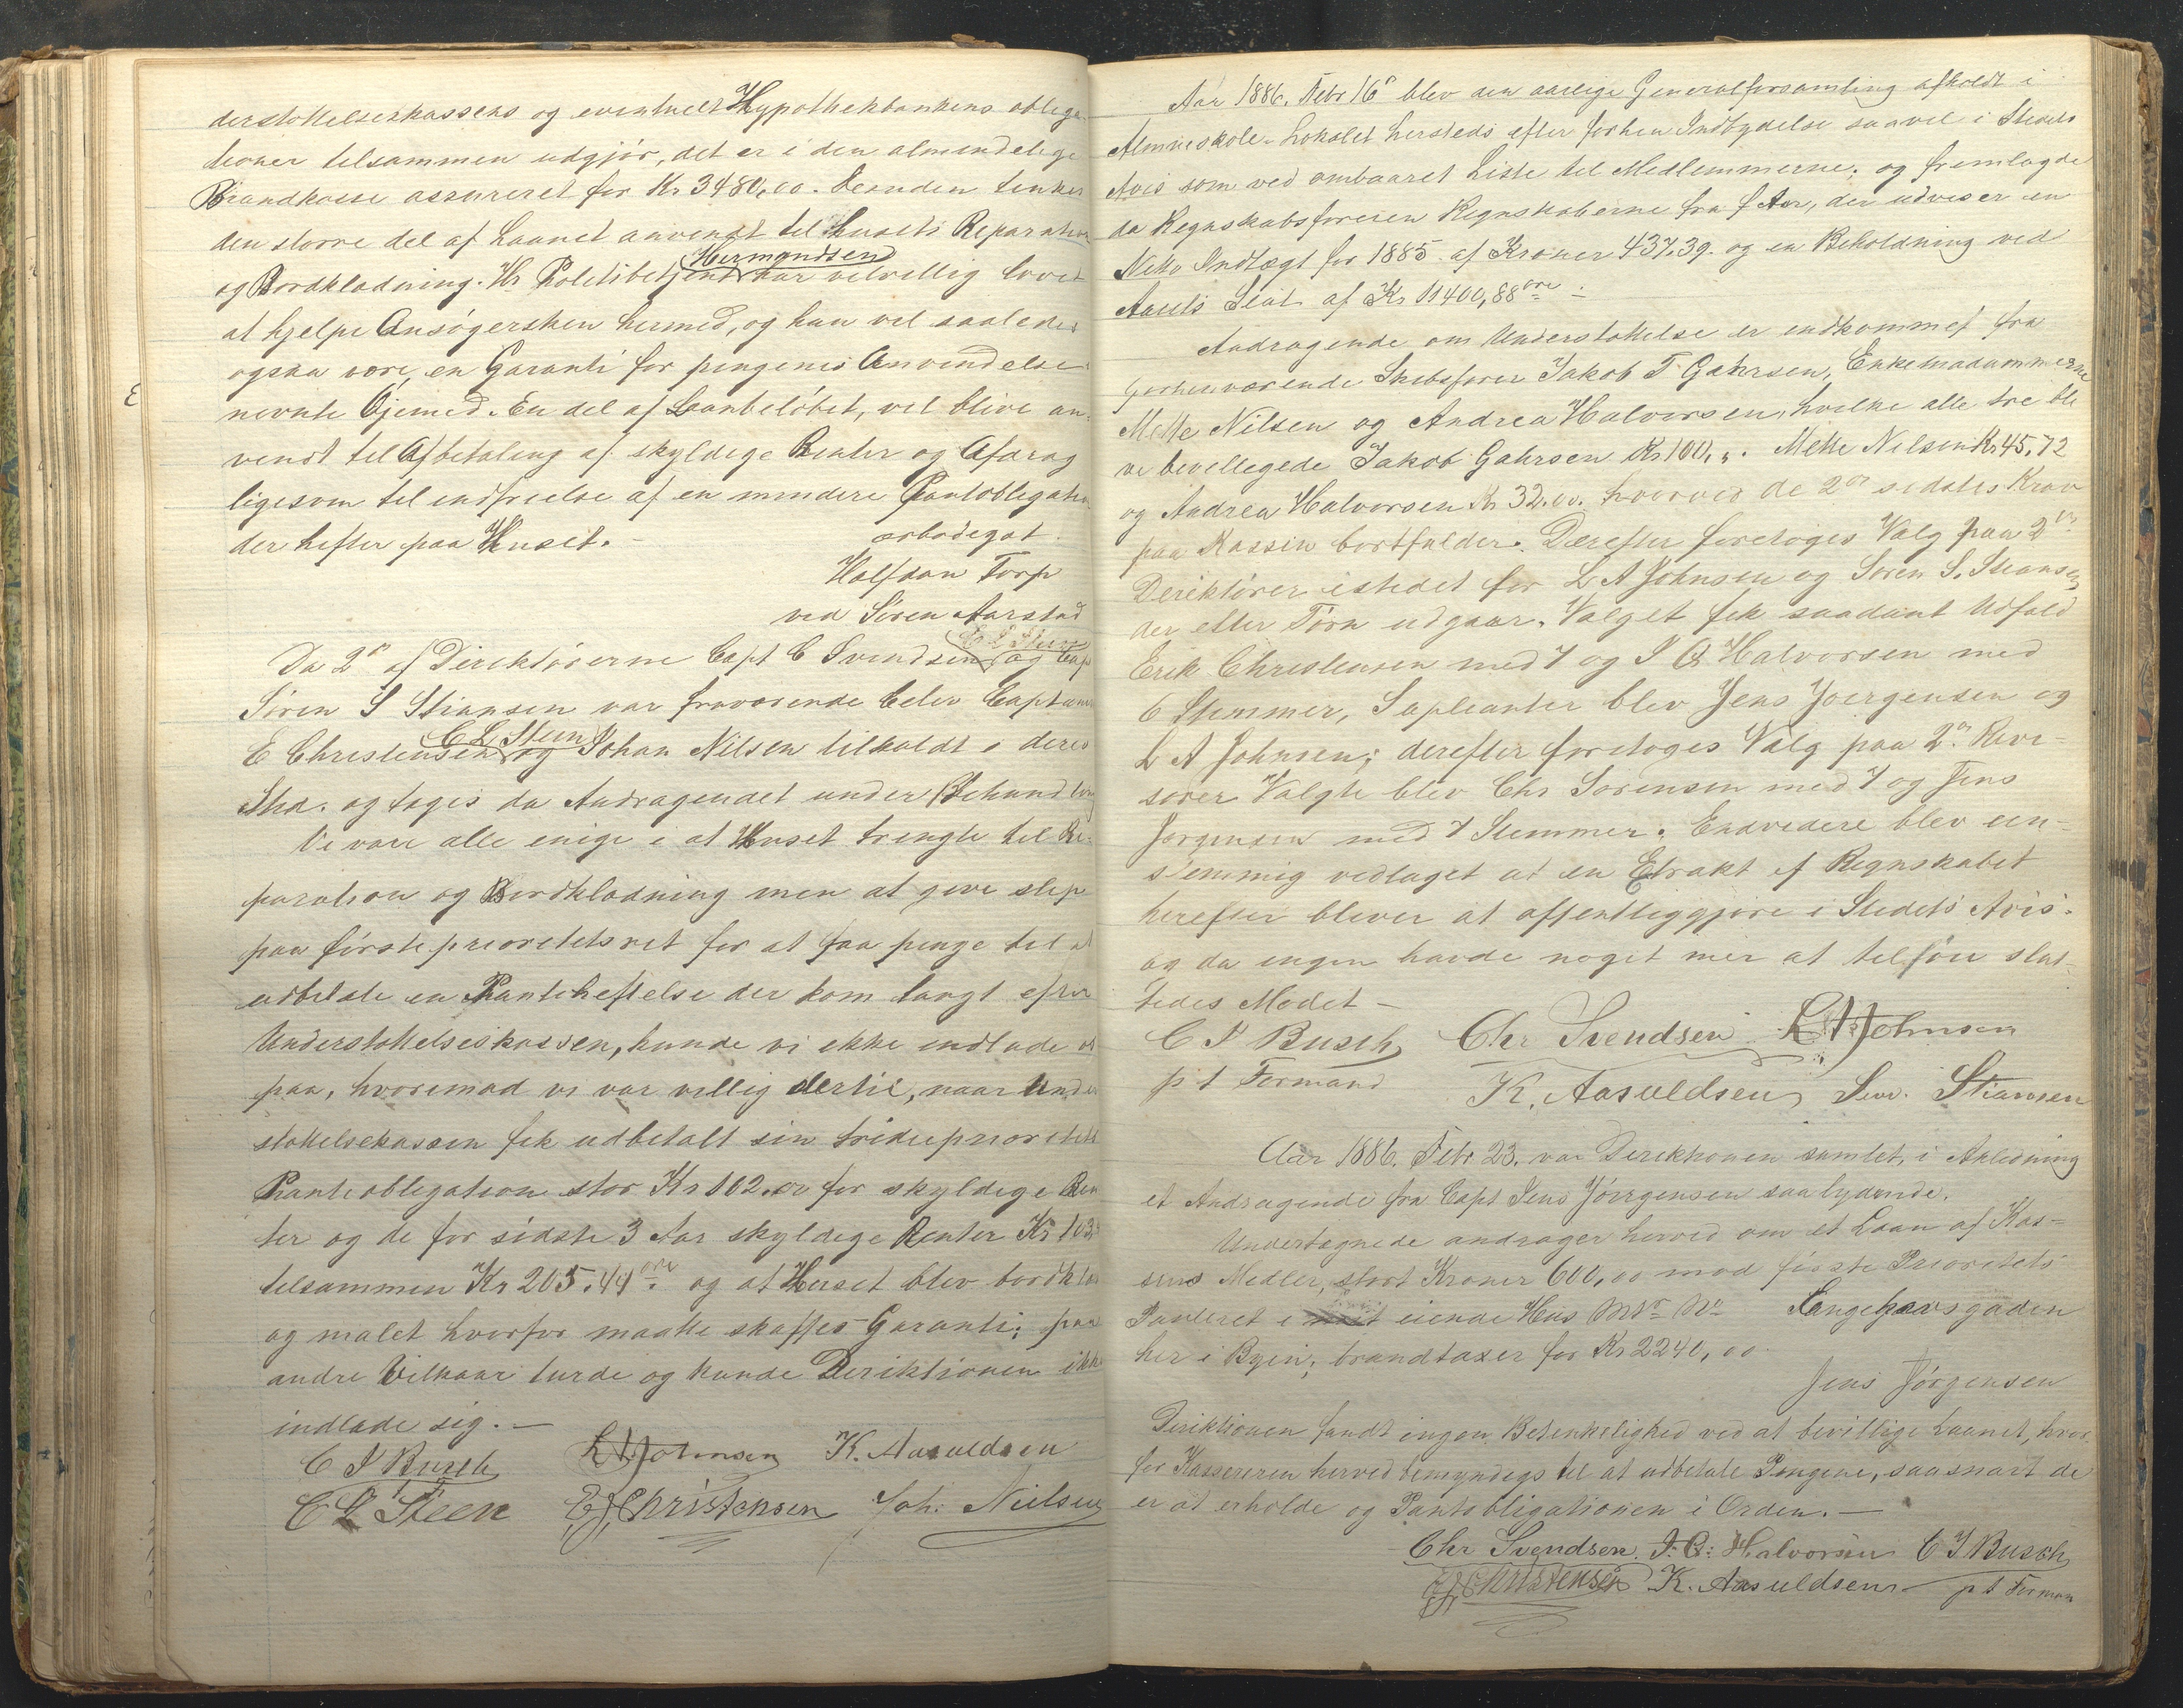 derstøttelseskassens og eventuelt Hypothekbankens obliga-
tioner tilsammen udgjør, det er i den almindelige
Brandkasse assureret for Kr 3480,00. Desuden tenkes
den større del af Laanet anvendt til husets Reparation
Hermandsen
og Bordkladning. Hr Politibetjent har velvillig lovet
at hjelpe Ansøgersken hermed, og han vil saaledes
ogsaa være en Garanti for pengenes Anvendelse
nevnte Øjemed. En del af Laanbeløbet, vil blive an-
vendt til Afbetaling af skyldige Renter og Afdrag
ligesom til indfrielse af en mindre Pantobligation
der hefter paa Huset.-
ærbødigst
Halfdan Torp
ved Søren Aarstad
C L Steen
Da 2de af Direktørerne Capt C Svendsen og Capt
Søren S Stiansen var fraværende blev Captainer
C L Steen
E Christensen og Johan Nilsen tilkaldt i deres
Sted. og toges da Andragendet under Behandling
Vi vare alle enige i at Huset trengte til Re-
paration og Bordkladning men at give slip
paa første prioritetsret for at faa penge til at
udbetale en Panteheftelse der kom langt efter
Understøttelseskassen, kunde vi ikke indlade os
paa, hvorimod vi var villig dertil, naar Under
støttelsekassen fik udbetalt sin tridieprioritets
Panteobligation stor Kr 102.00 for skyldige Ren
ter og de for sidste 3 Aar skyldige Renter Kr 103
tilsammen Kr 205.44 øre og at Huset blev bordklæ
og malet hvorfor maatte skaffes Garanti; paa
andre Vilkaar turde og kunde Direktionen ikke
indlade sig.-
C I Busch L A Johnsen K. Aasuldsen
C L Steen E J Christensen Joh: Nielsen
Aar 1886. Febr 16de blev den aarlige Generalforsamling afholdt i
Almueskole-Lokalet hersteds efter forhen Indbydelse saavel i Stedets
Avis som ved ombaaret Liste til Medlemmerne; og fremlagde
da Regnskabsføreren Regnskaberne fra f Aar, der udviser en
Netto Indtægt for 1885 af Kroner 437.39. og en Beholdning ved
Aarets Slut af Kr 11400,88 øre.
Andragende om Understøttelse er indkommet fra
forhenværende Skibsfører Jakob T Gahrsen, Enkemadammerne
Mette Nilsen og Andrea Halvorsen, hvilke alle tre ble
ve bevilligede Jakob Gahrsen Kr 100,,. Mette Nilsen Kr 45,72
og Andrea Halvorsen Kr 32.00. hvorved de 2de sidstes Krav
paa Kassen bortfalder. Derefter foretoges Valg paa 2de
Direktører istedet for L A Johnsen og Søren S. Stiansen
der efter Tørn udgaar. Valget fik saadant Udfald
Erik Christensen med 7 og I C Halvorsen med
6 Stemmer, Supleanter blev Jens Joergensen og
L A Johnsen; derefter foretoges Valg paa 2de Revi-
sorer Valgte blev Chr Sørensen med 7 og Jens
Jørgensen med 7 Stemmer. Endvidere blev een-
stemmig vedtaget at en Etrakt af Regnskabet
herefter bliver at offentliggjøre i Stedets Avis.
og da ingen havde noget mer at tilføie slut-
tedes Mødet -
C I Busch Chr Svendsen L A Johnsen
p t Formand K. Aasuldsen Sør. Stiansen
Aar 1886. Febr 23. var Direktionen samlet, i Anledning
et Andragende fra Capt Jens Jörgensen saalydende.
Undertegnede andrager herved om et Laan af Kas-
sens Medler, stort Kroner 600,00 mod første Prioritets
Panteret i eiende Hus MNr No Langehavsgaden
her i Byen; brandtaxer for Kr 2240,00.
Jens Jörgensen
Direktionen fandt ingen Betenkelighed ved at bevillige Laanet, hvor
for Kassereren herved bemyndiges til at udbetale Pengene, saasnart de
er at erholde og Pantobligationen i Orden. -
Chr Svendsen. I: C: Halvorsen C I Busch
E J Christensen K. Aasuldsen p t Forman